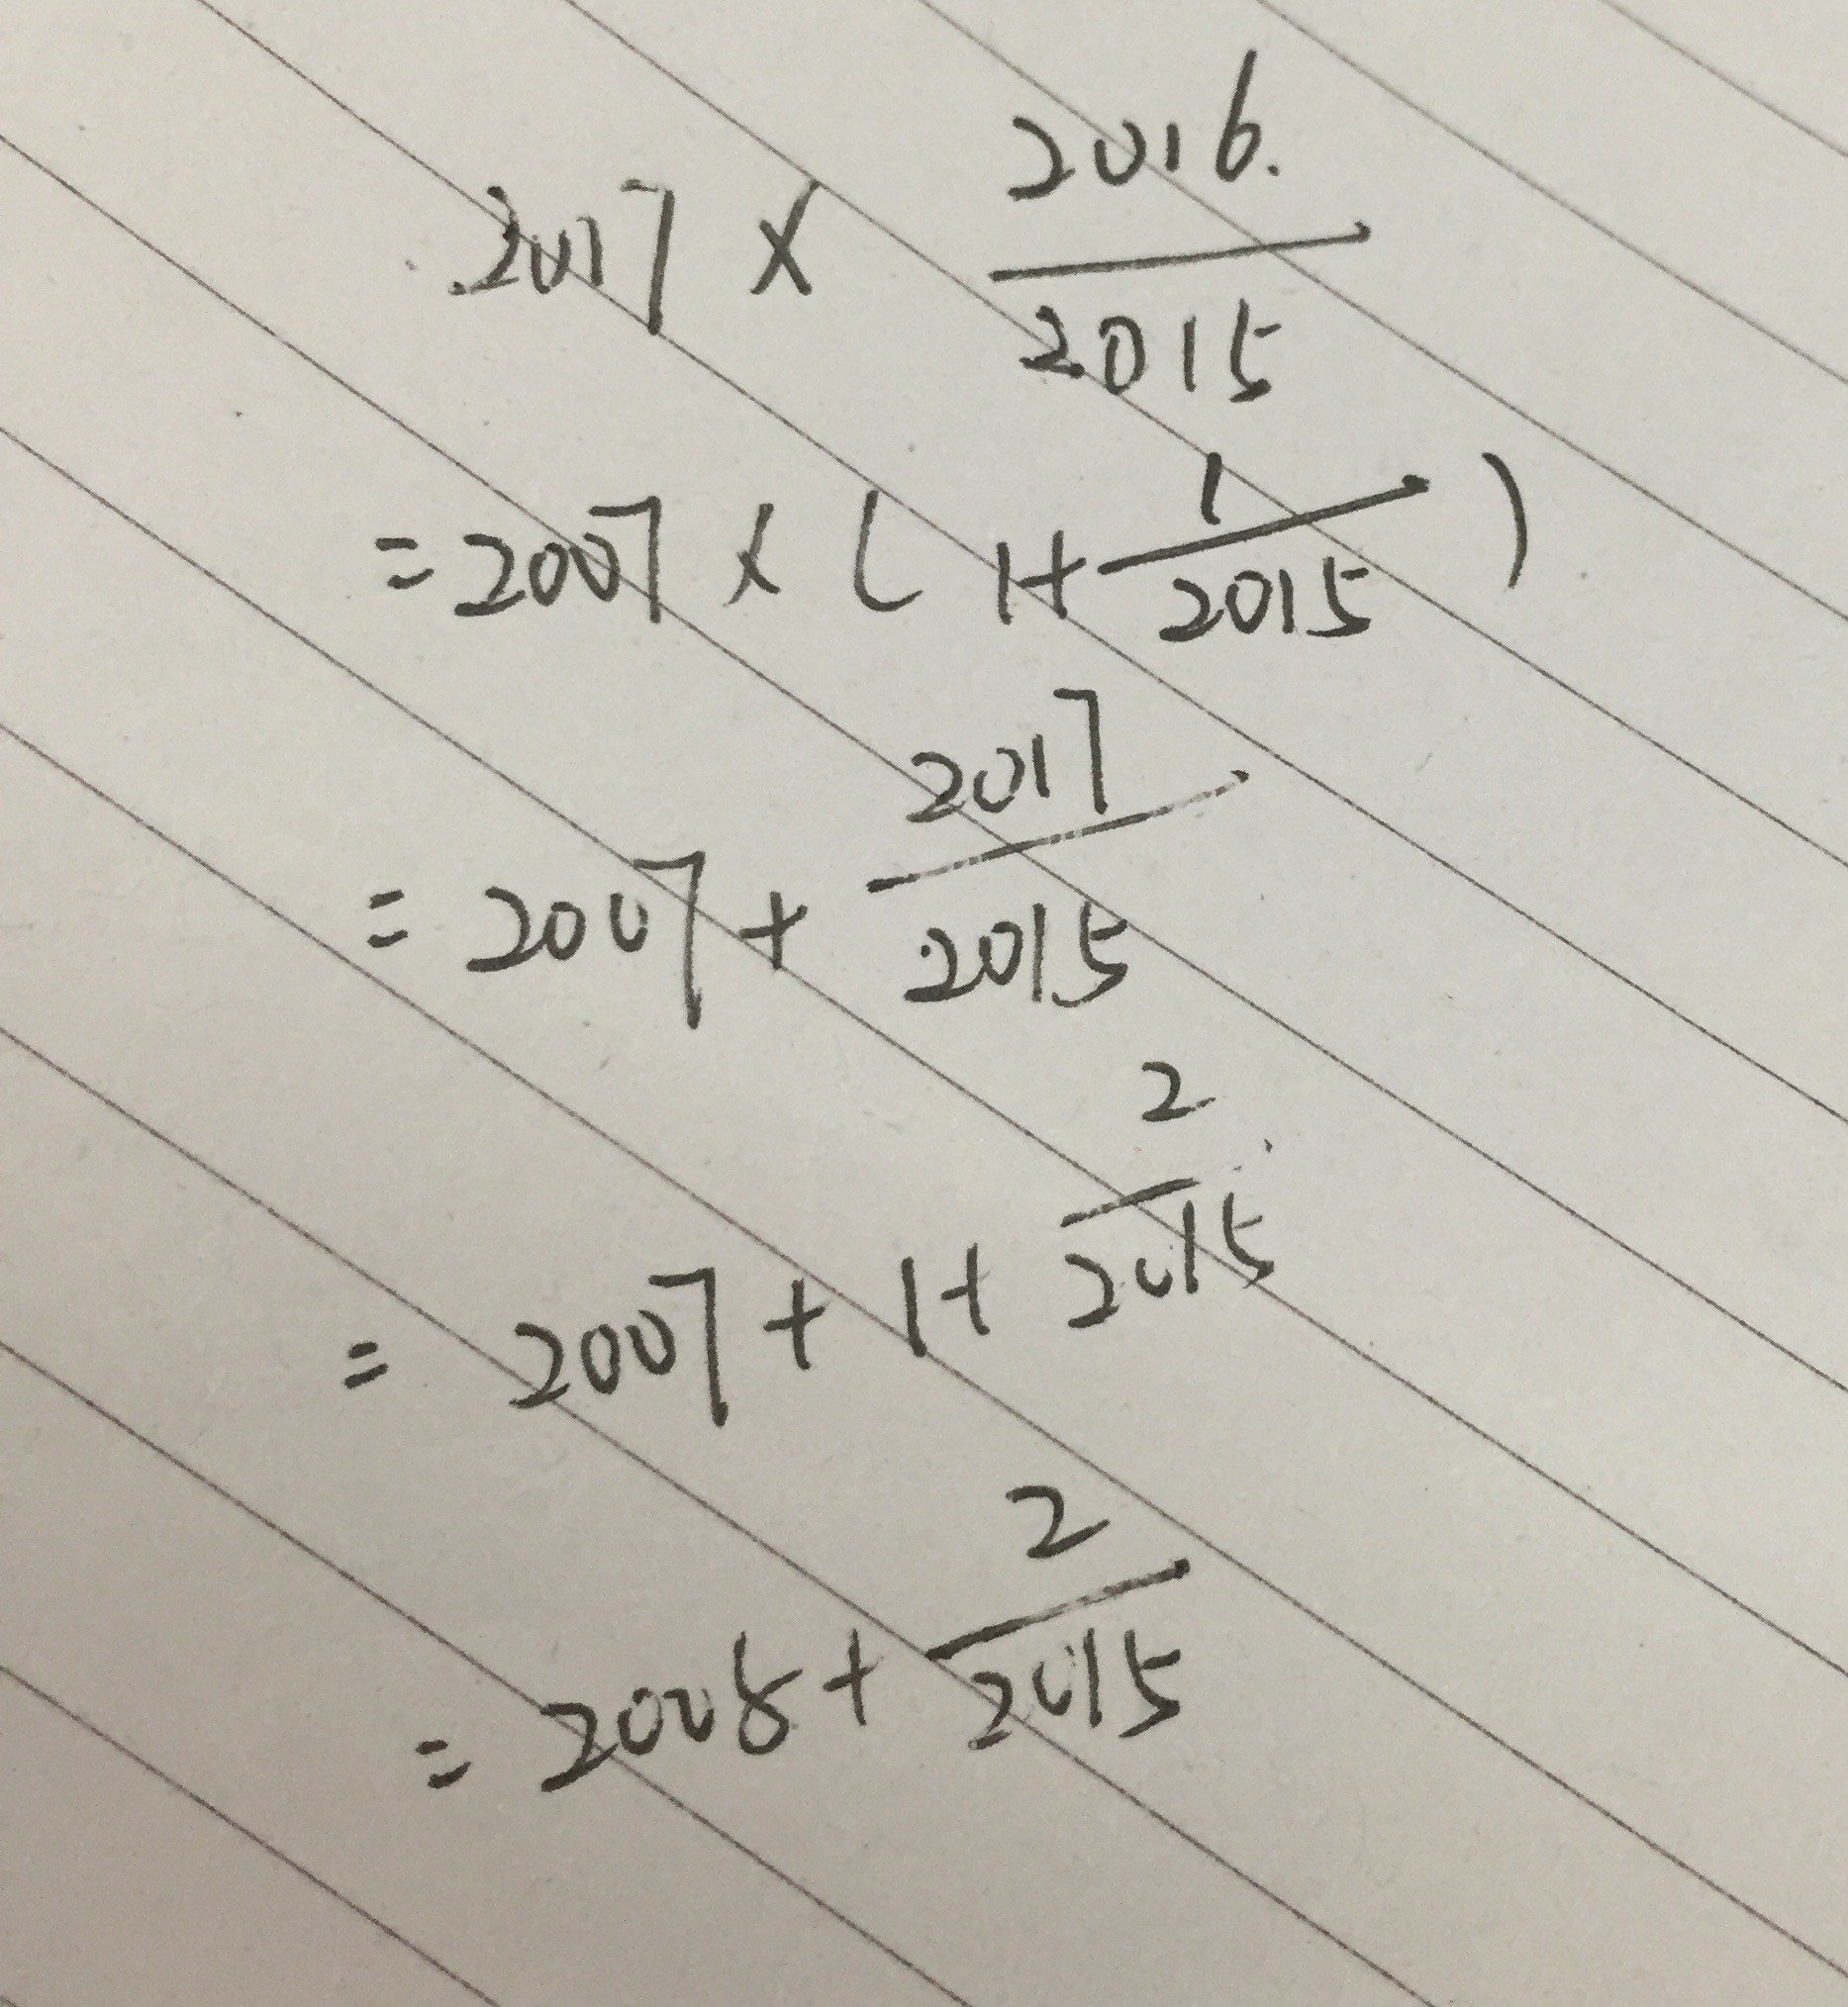 2017 × 2016/2015
= 2007 × (1+1/2015)
= 2007 + 2017/2015
= 2007 + 1+ 2/2015
= 2008 + 2/2015